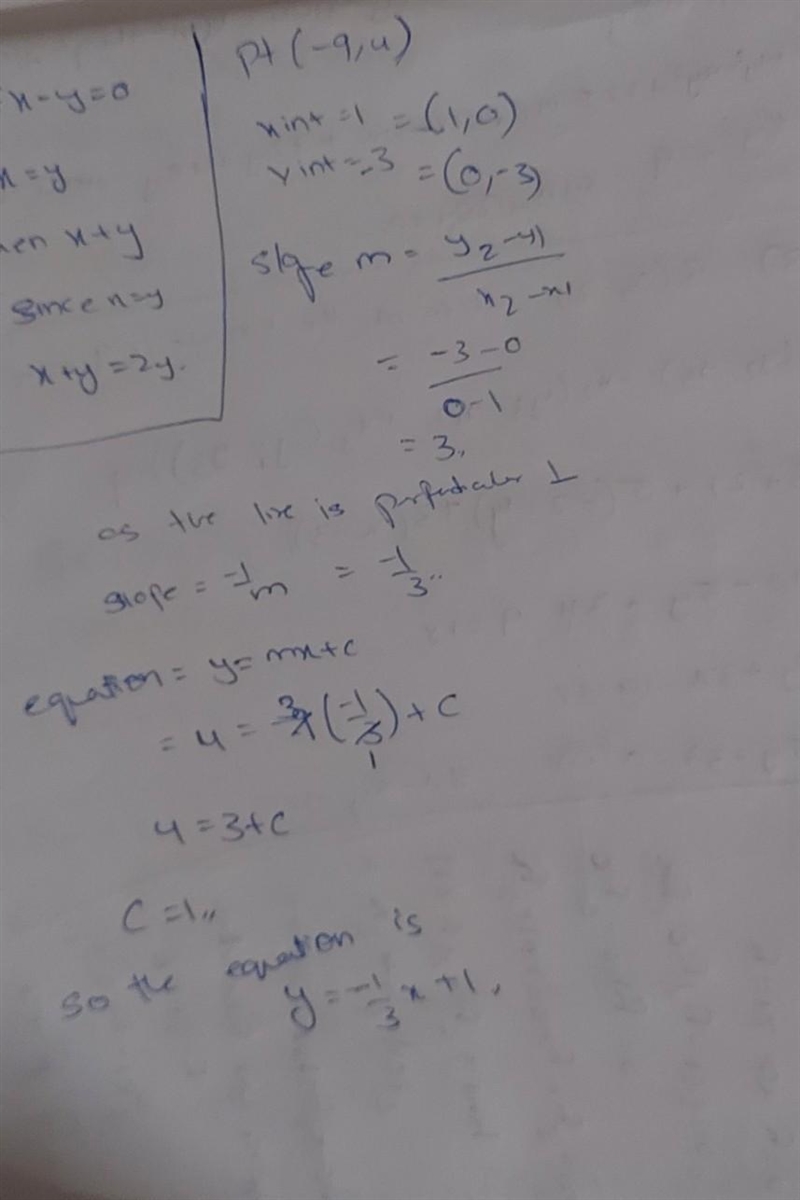 x-y=0
x=y
then x+y
since x=y
x+y=2y.
pt (-9,4)
x int =1 = (1,0)
Y int =-3 = (0,-3)
slope m = y2-y1
x2-x1
= -3-0
0-1
= 3,,
as the line is ⊥
slope = -1/m = -1/3,,
equation = y= mx+c
= 4 = (-1/3) + c
1
4 =3+c
C =1,,
so the equation is
y = -1/3 x +1,